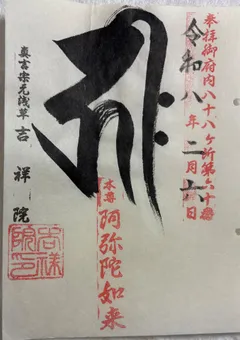 奉拝御府内八十八ヶ所第六十番
令和八年二月六日
本尊阿弥陀如来
真言宗元浅草吉祥院
吉祥
院印